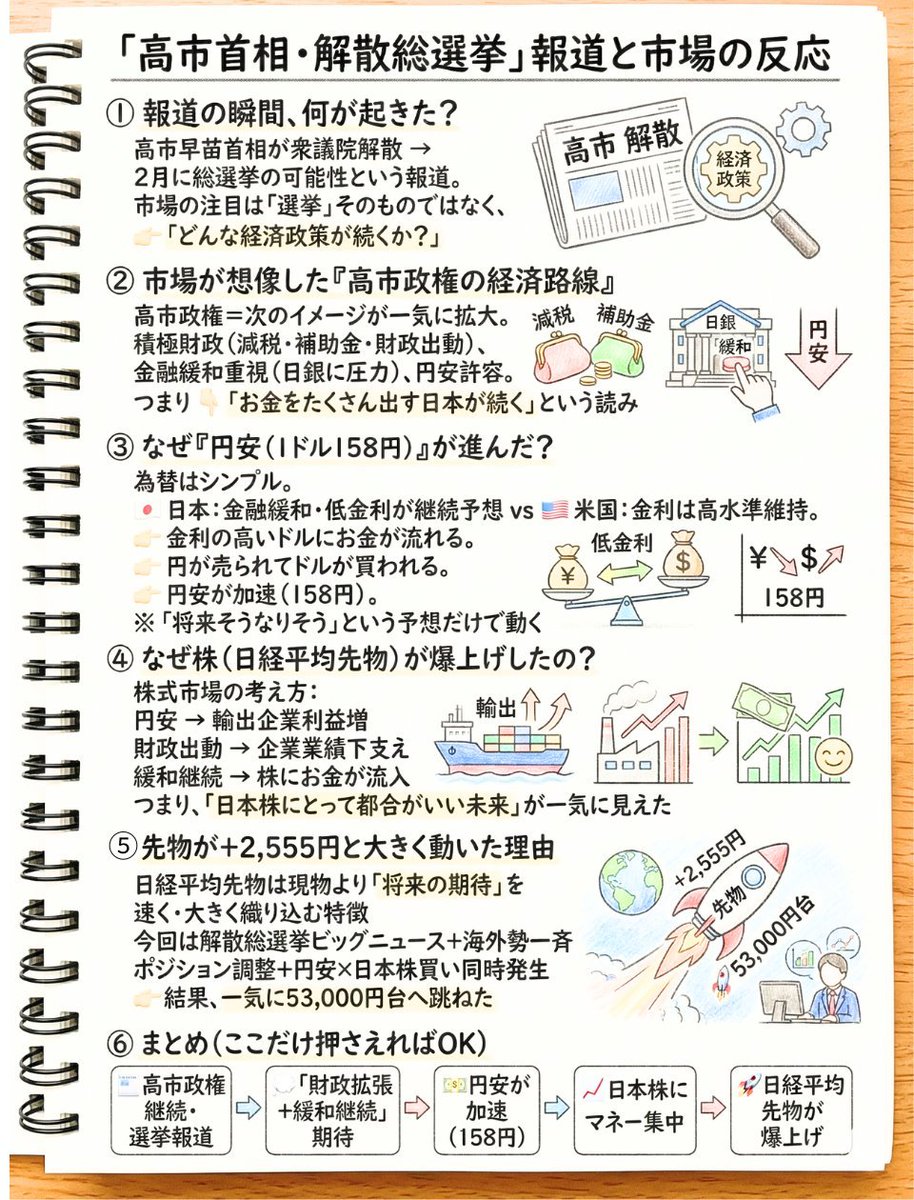 「高市首相・解散総選挙」報道と市場の反応
① 報道の瞬間、何が起きた？
高市早苗首相が衆議院解散 →
2月に総選挙の可能性という報道。
市場の注目は「選挙」そのものではなく、
👉🏻「どんな経済政策が続くか？」
高市 解散
経済
政策
② 市場が想像した『高市政権の経済路線』
高市政権＝次のイメージが一気に拡大。
積極財政（減税・補助金・財政出動）、
金融緩和重視（日銀に圧力）、円安許容。
つまり👇🏻「お金をたくさん出す日本が続く」という読み
減税
補助金
日銀
「緩和
円安
③ なぜ『円安（1ドル158円）』が進んだ？
為替はシンプル。
🇯🇵 日本：金融緩和・低金利が継続予想 vs 🇺🇸 米国：金利は高水準維持。
👉🏻 金利の高いドルにお金が流れる。
👉🏻 円が売られてドルが買われる。
👉🏻 円安が加速（158円）。
※「将来そうなりそう」という予想だけで動く
低金利
¥
$
¥ $
158円
④ なぜ株（日経平均先物）が爆上げしたの？
株式市場の考え方：
円安 → 輸出企業利益増
財政出動 → 企業業績下支え
緩和継続 → 株にお金が流入
つまり、「日本株にとって都合がいい未来」が一気に見えた
輸出
⑤ 先物が＋2,555円と大きく動いた理由
日経平均先物は現物より「将来の期待」を
速く・大きく織り込む特徴
今回は解散総選挙ビッグニュース＋海外勢一斉
ポジション調整＋円安×日本株買い同時発生
👉🏻 結果、一気に53,000円台へ跳ねた
+2,555円
先物
🚀53,000円台
⑥ まとめ（ここだけ押さえればOK）
高市政権
継続・
選挙報道
💭「財政拡張
＋緩和継続」
期待
💵円安が
加速
（158円）
📈日本株に
マネー集中
🚀日経平均
先物が
爆上げ